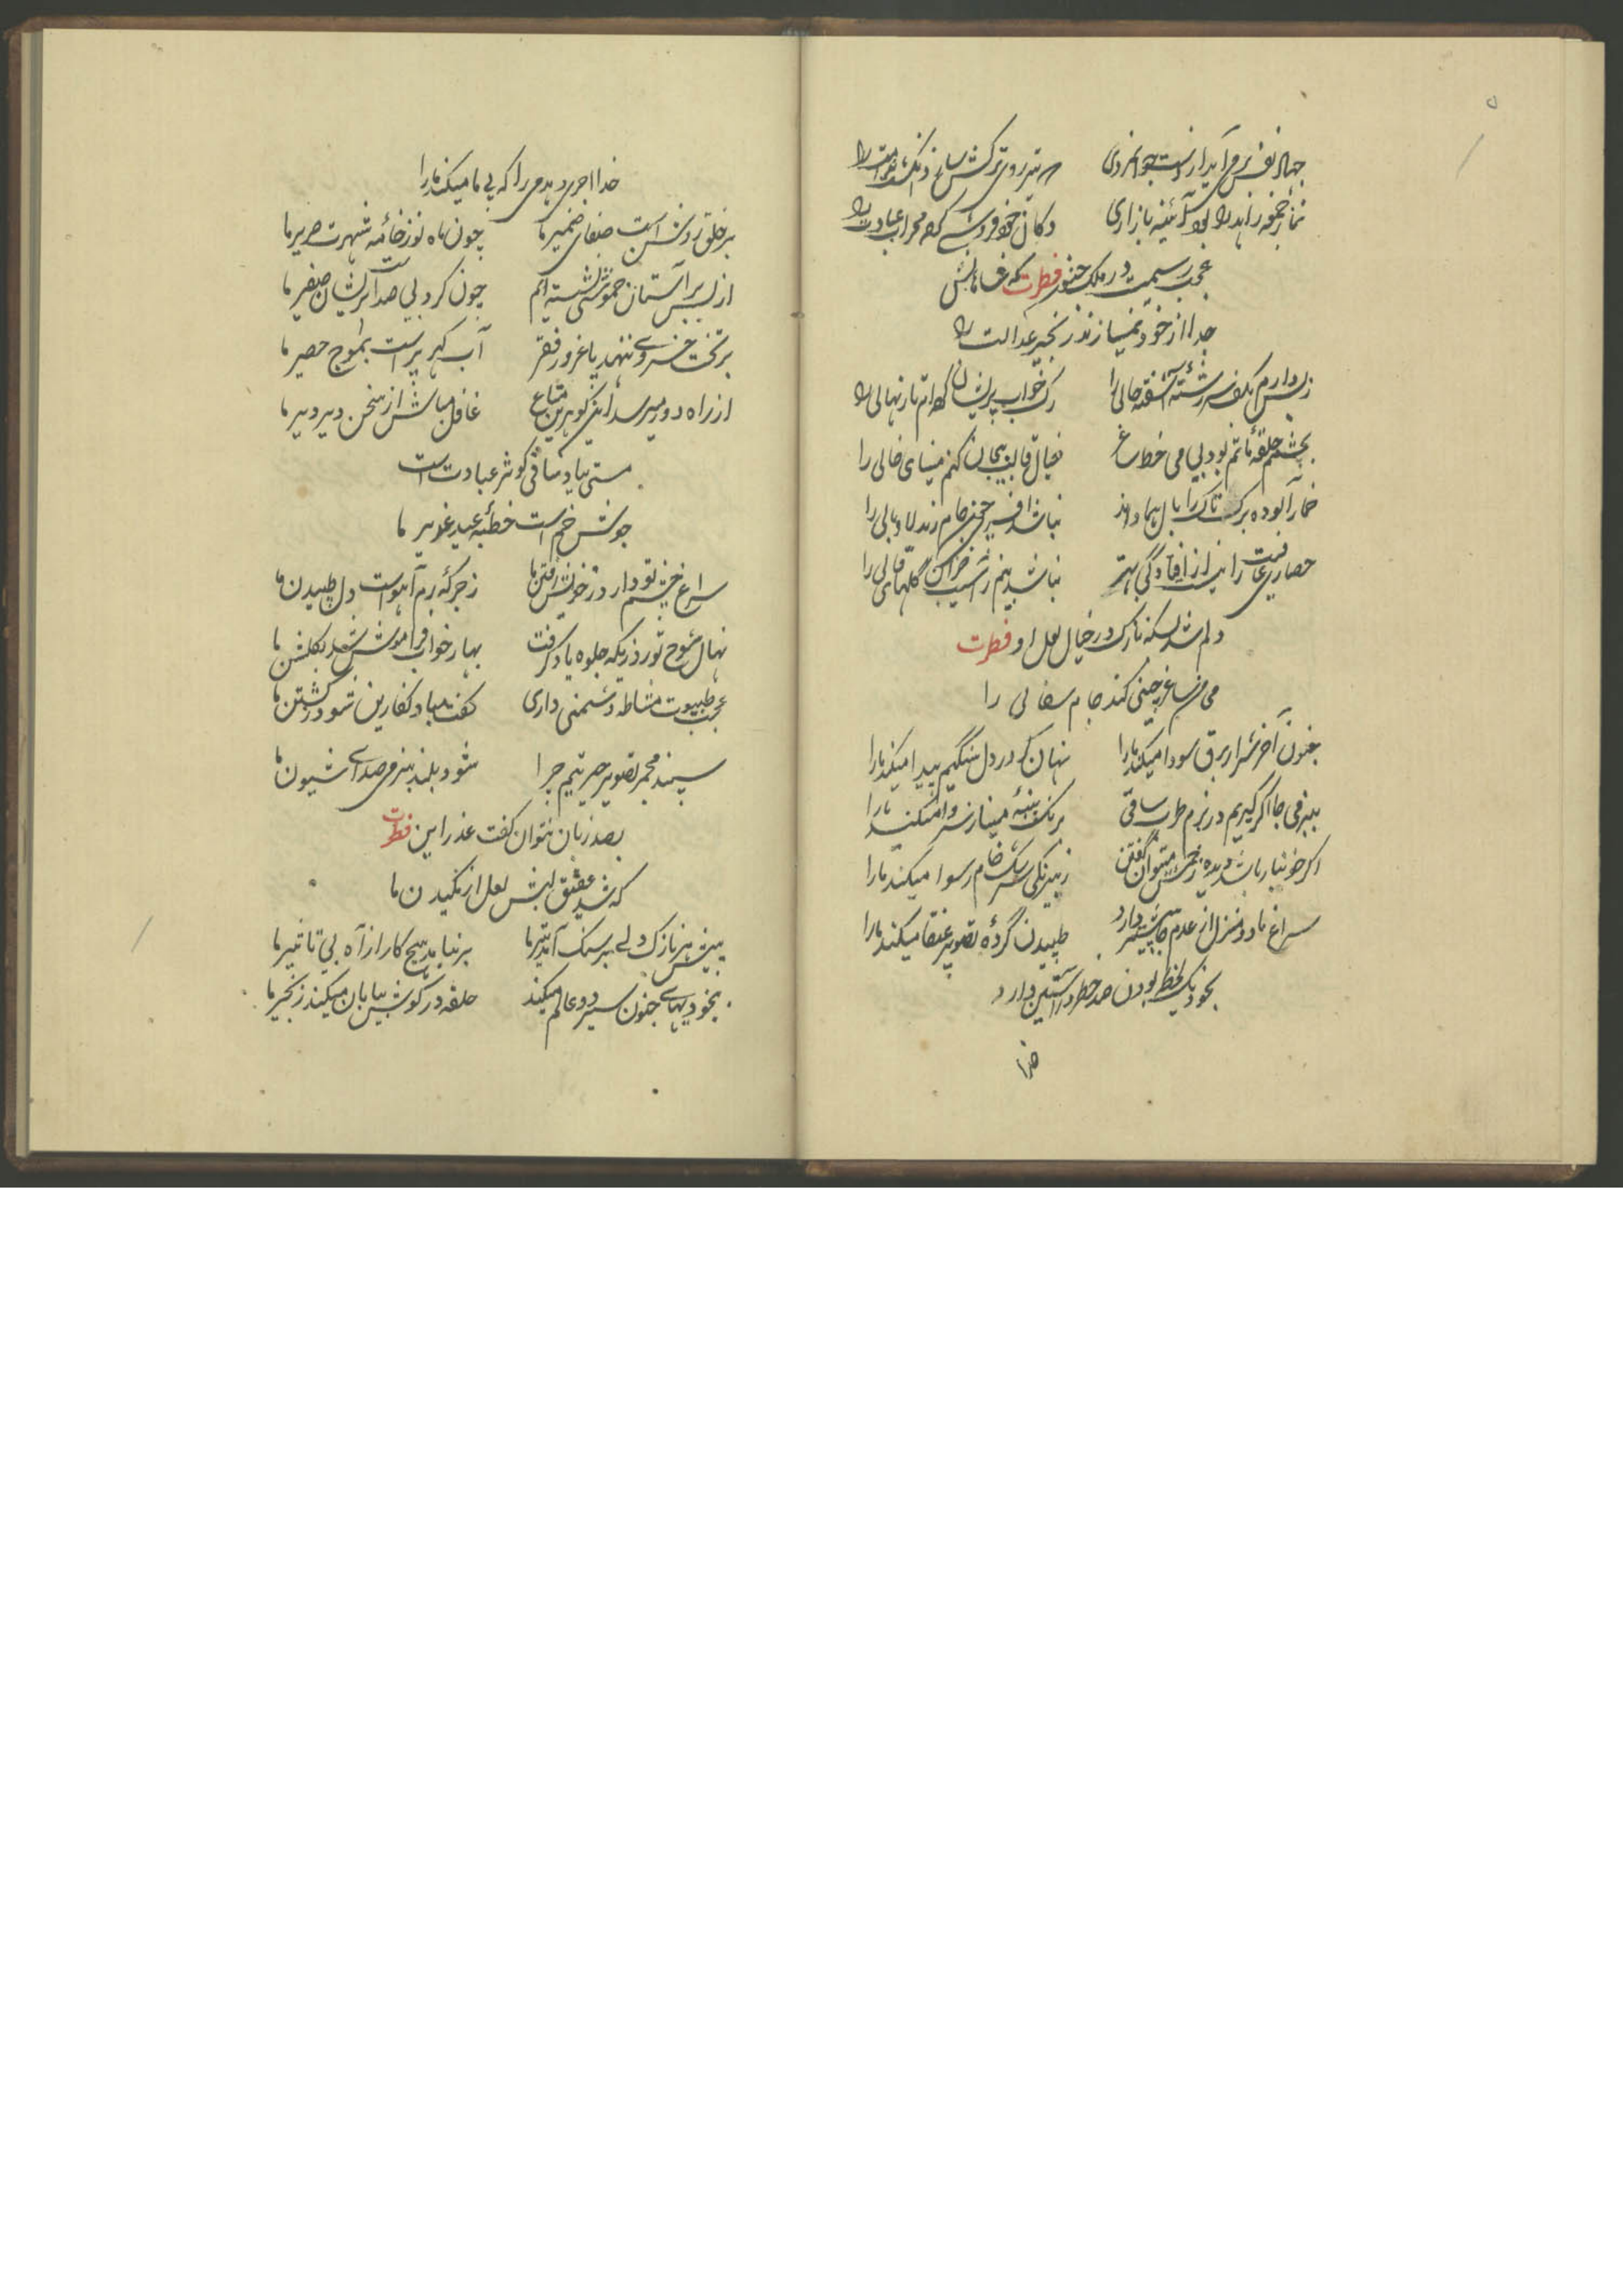 ۵
جهاد نفس می آید از دست جوانمردی
نماز جمعه زاهد را بود آئینه بازاری
دکان خودفروشی کرده محراب عبادت را
عجب رسمیست در ملک جنون فطرت که
جدا از خود نمیسازند زنجیر عدالت را
ز بس دارم بکف سررشته آشفته حالی را
رگ خواب پریشان کرده ام تار نهالی را
بچشمم حلقه ماتم بود بی می خط ساغر
خیال قالب بیجان کنم مینای خالی را
خمارآلوده برگ تاک را بال هما داند
نباشد افسری چون جام رند لاابالی را
حصاری عافیت را نیست از افتادگی بهتر
نباشد بیم ز آسیب خزان گلهای قالی را
دلم شد بسکه نازک در خیال لعل او فطرت
می من ساغر چینی کند جام سفالی را
جنون آخر شرار برق سودا میکند ما را
نهان گر در دل سنگیم پیدا میکند ما را
بمیرفی جا اگر گیریم در بزم طرب ساقی
برنگ پنبه مینا ز سر وا میکند ما را
اگر خونبار باشد دیده زخمش میتوان گفتن
ز بیرنگی سرشک خام رسوا میکند ما را
سراغ ما دو منزل از عدم جا پیشتر دارد
طپیدن گرده تصویر عنقا میکند ما را
بخود یک لحظه بودن صد خطر در آستین دارد
خدا
خدا اجری دهد می را که بی ما میکند ما را
بر خلق روشن است صفای ضمیر ما
چون ماه نو ز خامه شهرت صریر ما
از بس بر آستان خموشی نشسته ایم
چون گرد بی صداست پریشان صفیر ما
بر تخت خسروی ننهد پا غرور فقر
آب گهر پر است بموج حصیر ما
از راه دور میرسد این گوهرین متاع
غافل مباش از سخن دیر دیر ما
مستی بیاد ساقی کوثر عبادت است
جوش خم است خطبه عید غدیر ما
سراغ خشم تو دارد ز خویش رفتن ما
ز جرگه رم آهوست دل طپیدن ما
نهال شوخ تو روزیکه جلوه یاد گرفت
بهار خواب فراموش شد بگلشن ما
عجب طبیعت مشاطه دشمنی داری
کفت مباد نگارین شود ز کشتن ما
سپند مجمر تصویر حیرتیم چرا
شود بلند ببزمی صدای شیون ما
بصد زبان نتوان گفت عذر این فطرت
که شد عقیق لبش لعل از مکیدن ما
بیش بر نازک دلی بر سنگ آمد تیر ما
بر نیامد هیچ کار از آه بی تاثیر ما
بیخودیهای جنون سیر دو عالم میکند
حلقه در گوش بیابان میکند زنجیر ما